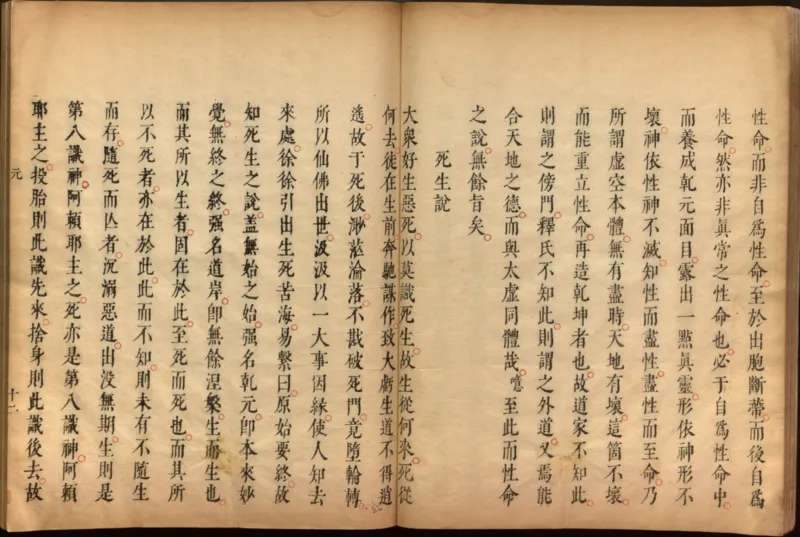 性命而非自爲性命至於出胞斷蒂而後自爲
性命然亦非眞常之性命也必于自爲性命中
而養成乾元面目露出一點眞靈形依神形不
壞神依性神不滅知性而盡性盡性而至命乃
所謂虛空本體無有盡時天地有壞這箇不壞
而能重立性命再造乾坤者也故道家不知此
則謂之傍門釋氏不知此則謂之外道又焉能
合天地之德而與太虛同體哉噫至此而性命
之說無餘旨矣
死生說
大衆好生惡死以莫識死生故生從何來死從
何去徒在生前奔馳謀作致大虧生道不得逍
遙故于死後渺茫淪落不戡破死門竟墮輪轉
所以仙佛出世汲汲以一大事因緣使人知去
來處徐徐引出生死苦海易繫曰原始要終故
知死生之說蓋無始之始强名乾元卽本來妙
覺無終之終强名道岸卽無餘涅槃生而生也
而其所以生者固在於此至死而死也而其所
以不死者亦在於此此而不知則未有不隨生
而存隨死而亾者沉溺惡道出没無期生則是
第八識神阿賴耶主之死亦是第八識神阿賴
耶主之投胎則此識先來捨身則此識後去故
元